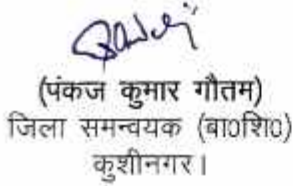 (पंकज कुमार गौतम)
जिला समन्वयक (बा०शि०)
कुशीनगर।